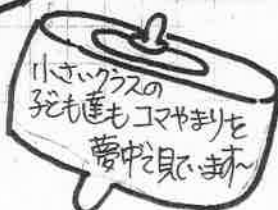 小さいクラスの
子ども達も コマやまりを
夢中で見ています〜